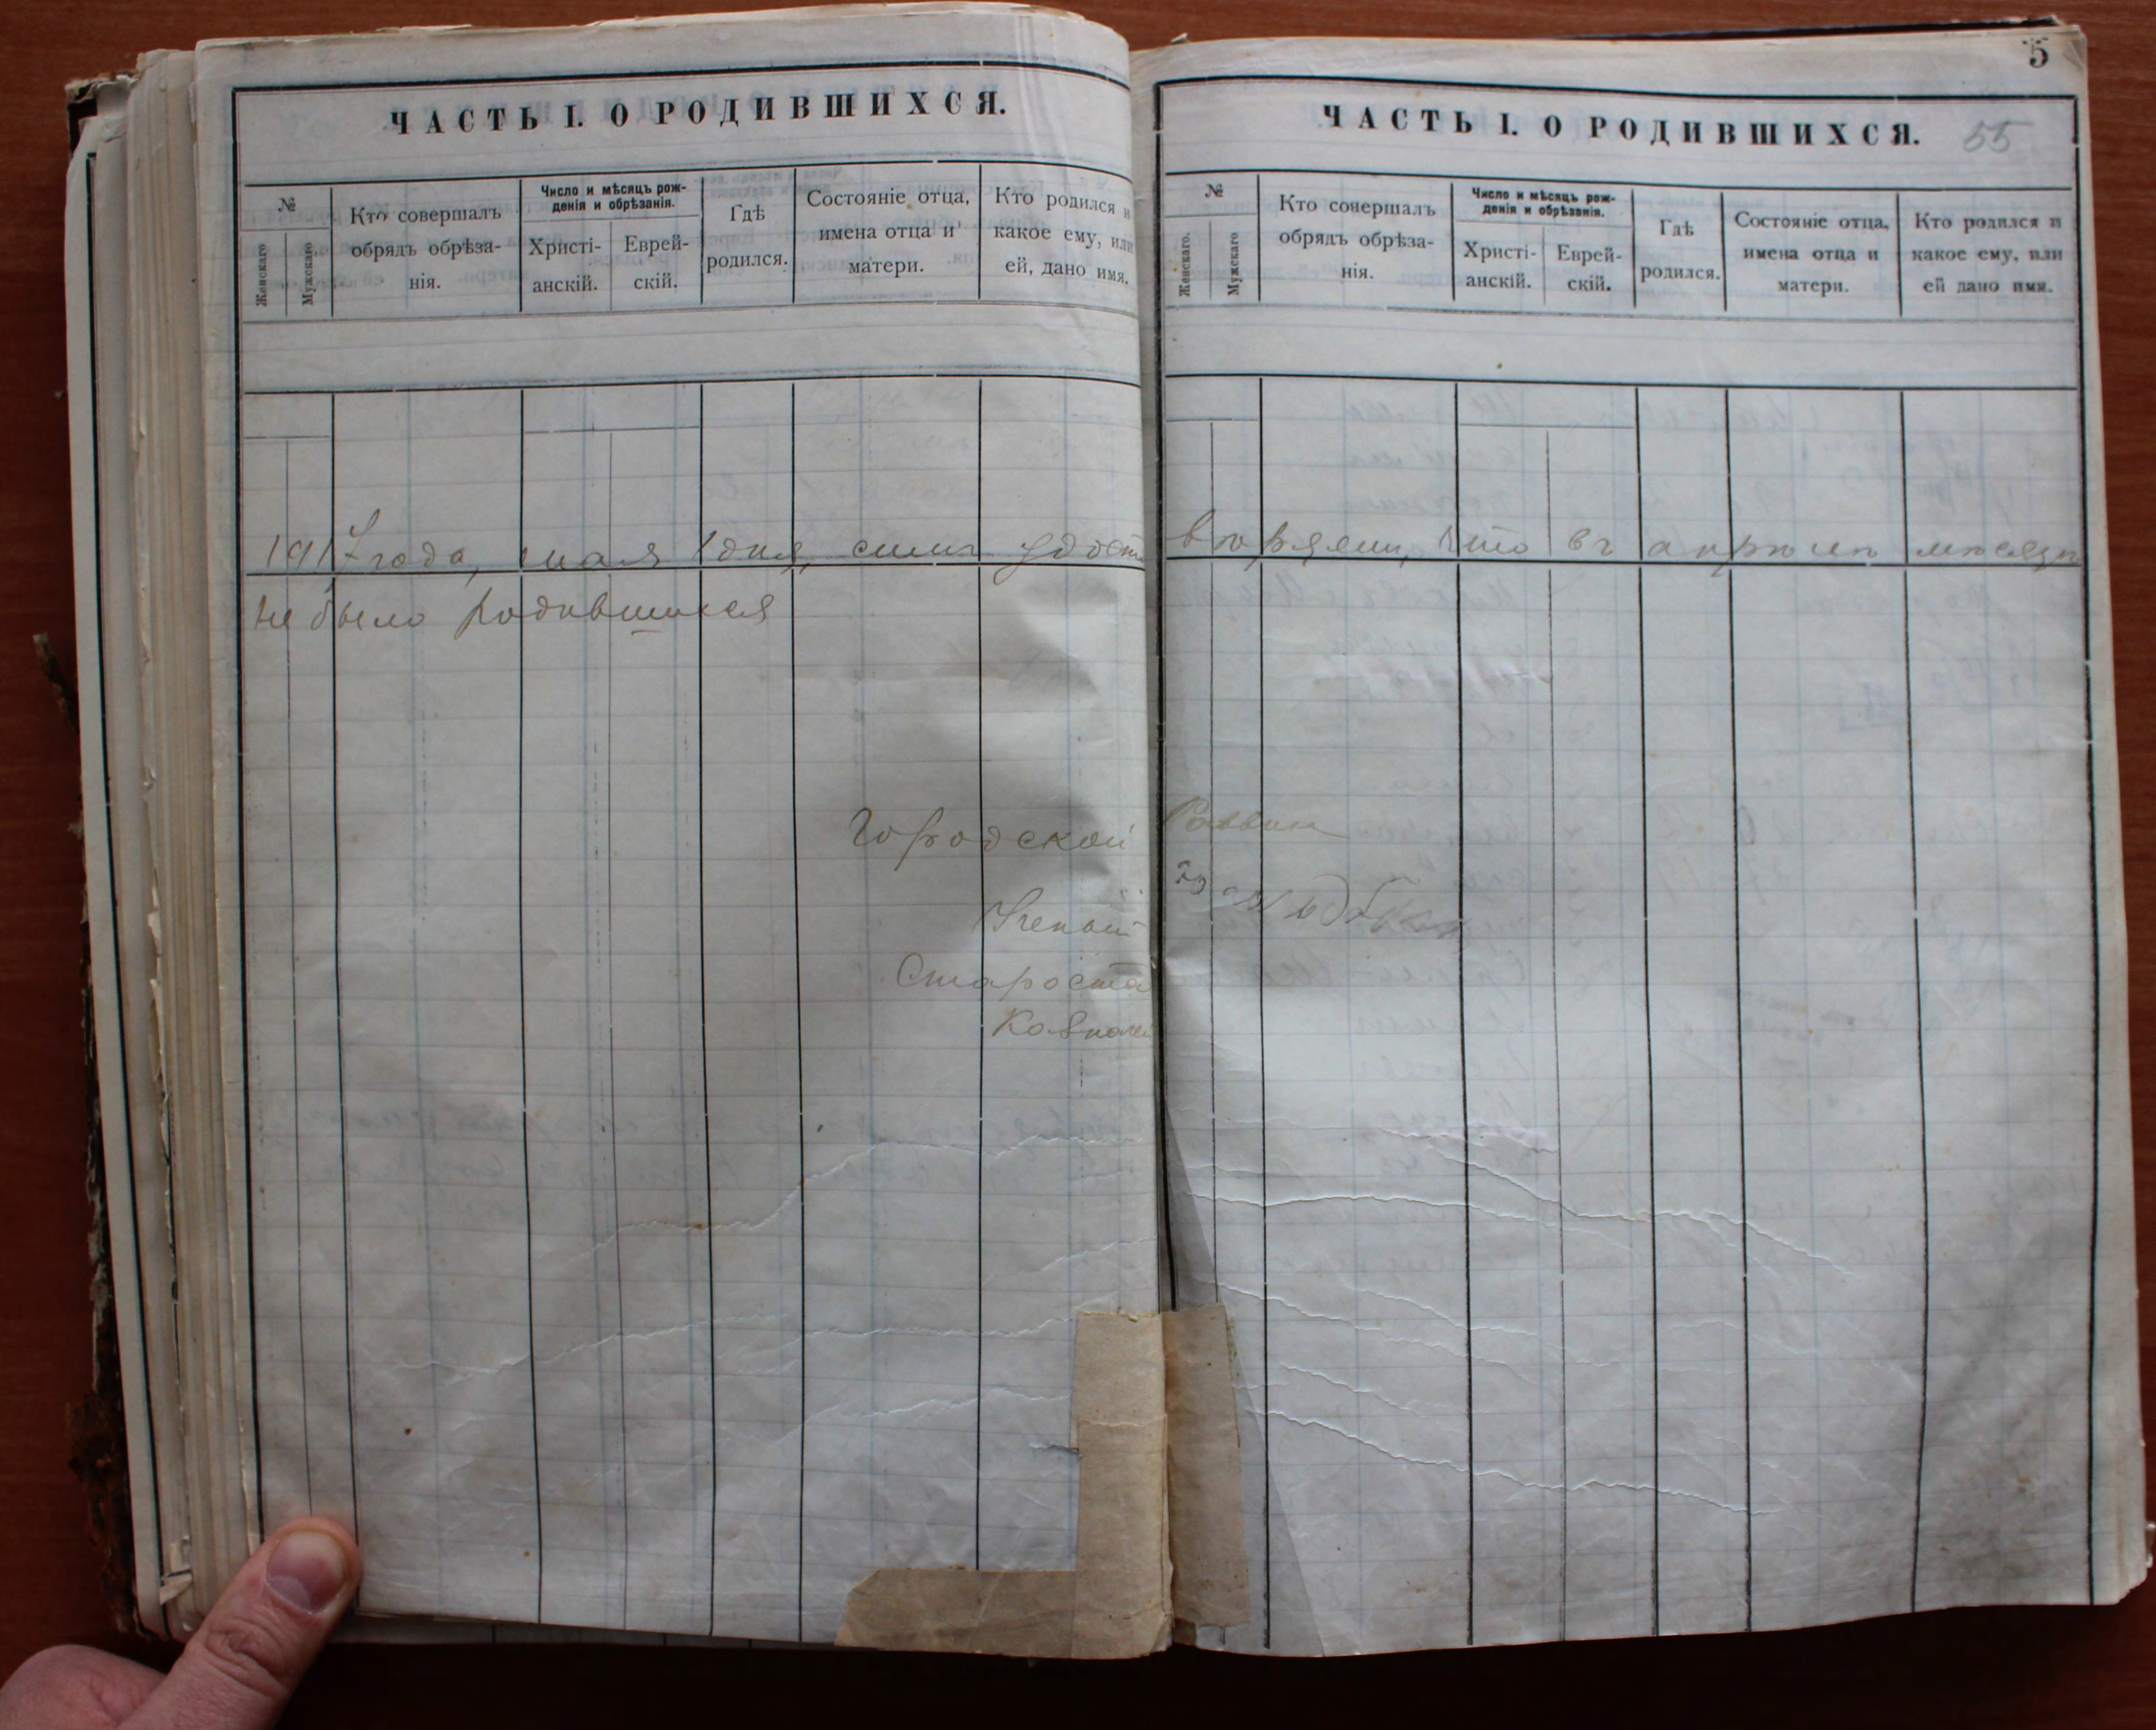 ЧАСТЬ I. О РОДИВШИХСЯ.
№
Женскаго
Мужскаго
Кто совершалъ
обрядъ обрѣза-
нія.
Число и мѣсяцъ рож-
денія и обрѣзанія.
Христі-
анскій.
Еврей-
скій.
Гдѣ
родился.
Состояніе отца,
имена отца и
матери.
Кто родился и
какое ему, или
ей, дано имя.
5
ЧАСТЬ I. О РОДИВШИХСЯ. 55
№
Женскаго.
Мужскаго
Кто совершалъ
обрядъ обрѣза-
нія.
Число и мѣсяцъ рож-
денія и обрѣзанія.
Христі-
анскій.
Еврей-
скій.
Гдѣ
родился.
Состояніе отца,
имена отца и
матери.
Кто родился и
какое ему, или
ей дано имя.
1917 года, мая 1 дня, симъ удостовѣряемъ, что въ апрѣлѣ мѣсяцѣ
не было родившихся
Городской Раввин
Ученый
Староста
Казначей